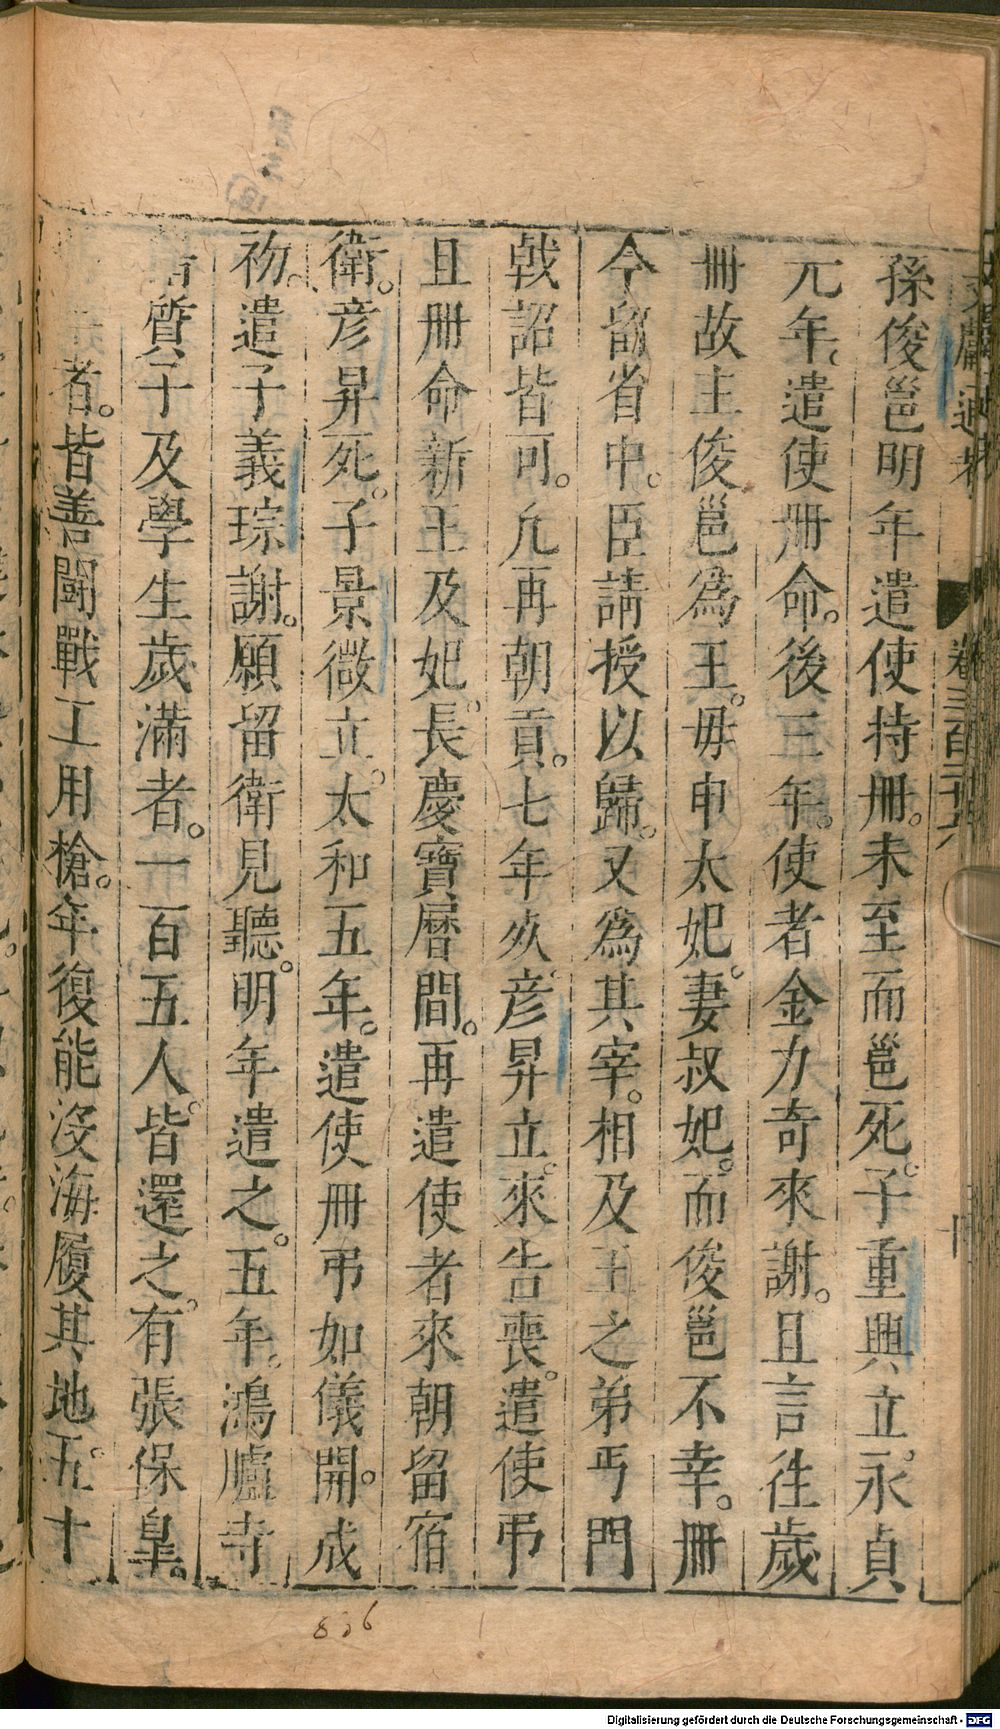 孫俊邕明年遣使持冊。未至而邕死。子重興立。永貞
元年。遣使冊命。後三年。使者金力奇來謝。且言往歲
冊故主俊邕為王。毋申太妃。妻叔妃。而俊邕不幸。冊
今留省中。臣請授以歸。又為其宰。相及王之弟丐門
戟詔皆可。允再朝貢。七年死。彥昇立。來告喪。遣使弔
且冊命新王及妃。長慶寶曆間。再遣使者來朝留宿
衛。彥昇死。子景徽立。太和五年。遣使冊弔如儀開。成
初。遣子義琮謝。願留衛見聽。明年遣之。五年。鴻臚寺
質子及學生歲滿者。一百五人。皆還之。有張保皐。
者。皆善鬪戰工用槍。年復能沒海履其地。五十
卷三百二十六
十
836
Digitalisierung gefördert durch die Deutsche Forschungsgemeinschaft - DFG